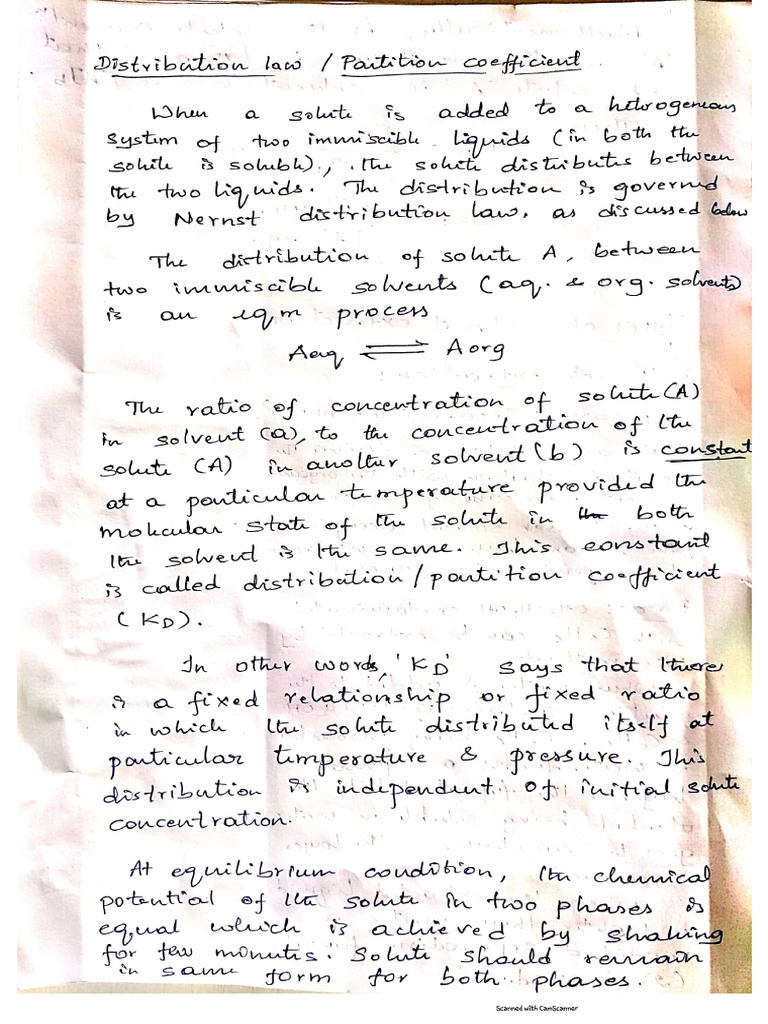 Distribution law / Partition coefficient
When a solute is added to a hetrogeneous
system of two immiscible liquids (in both the
solute is soluble), the solute distributes between
the two liquids. The distribution is governed
by Nernst distribution law, as discussed below
The distribution of solute A, between
two immiscible solvents (aq. & org. solvents)
is an eqm process
Aaq ⇌ Aorg
The ratio of concentration of solute (A)
in solvent (a), to the concentration of the
solute (A) in another solvent (b) is constant
at a particular temperature provided the
molecular state of the solute in the both
the solvent is the same. This constant
is called distribution/partition coefficient
(KD).
In other words, 'KD' says that there
is a fixed relationship or fixed ratio
in which the solute distributed itself at
particular temperature & pressure. This
distribution is independent of initial solute
concentration.
At equilibrium condition, the chemical
potential of the solute in two phases is
equal which is achieved by shaking
for few minutes. Solute should remain
in same form for both phases.
Scanned with CamScanner